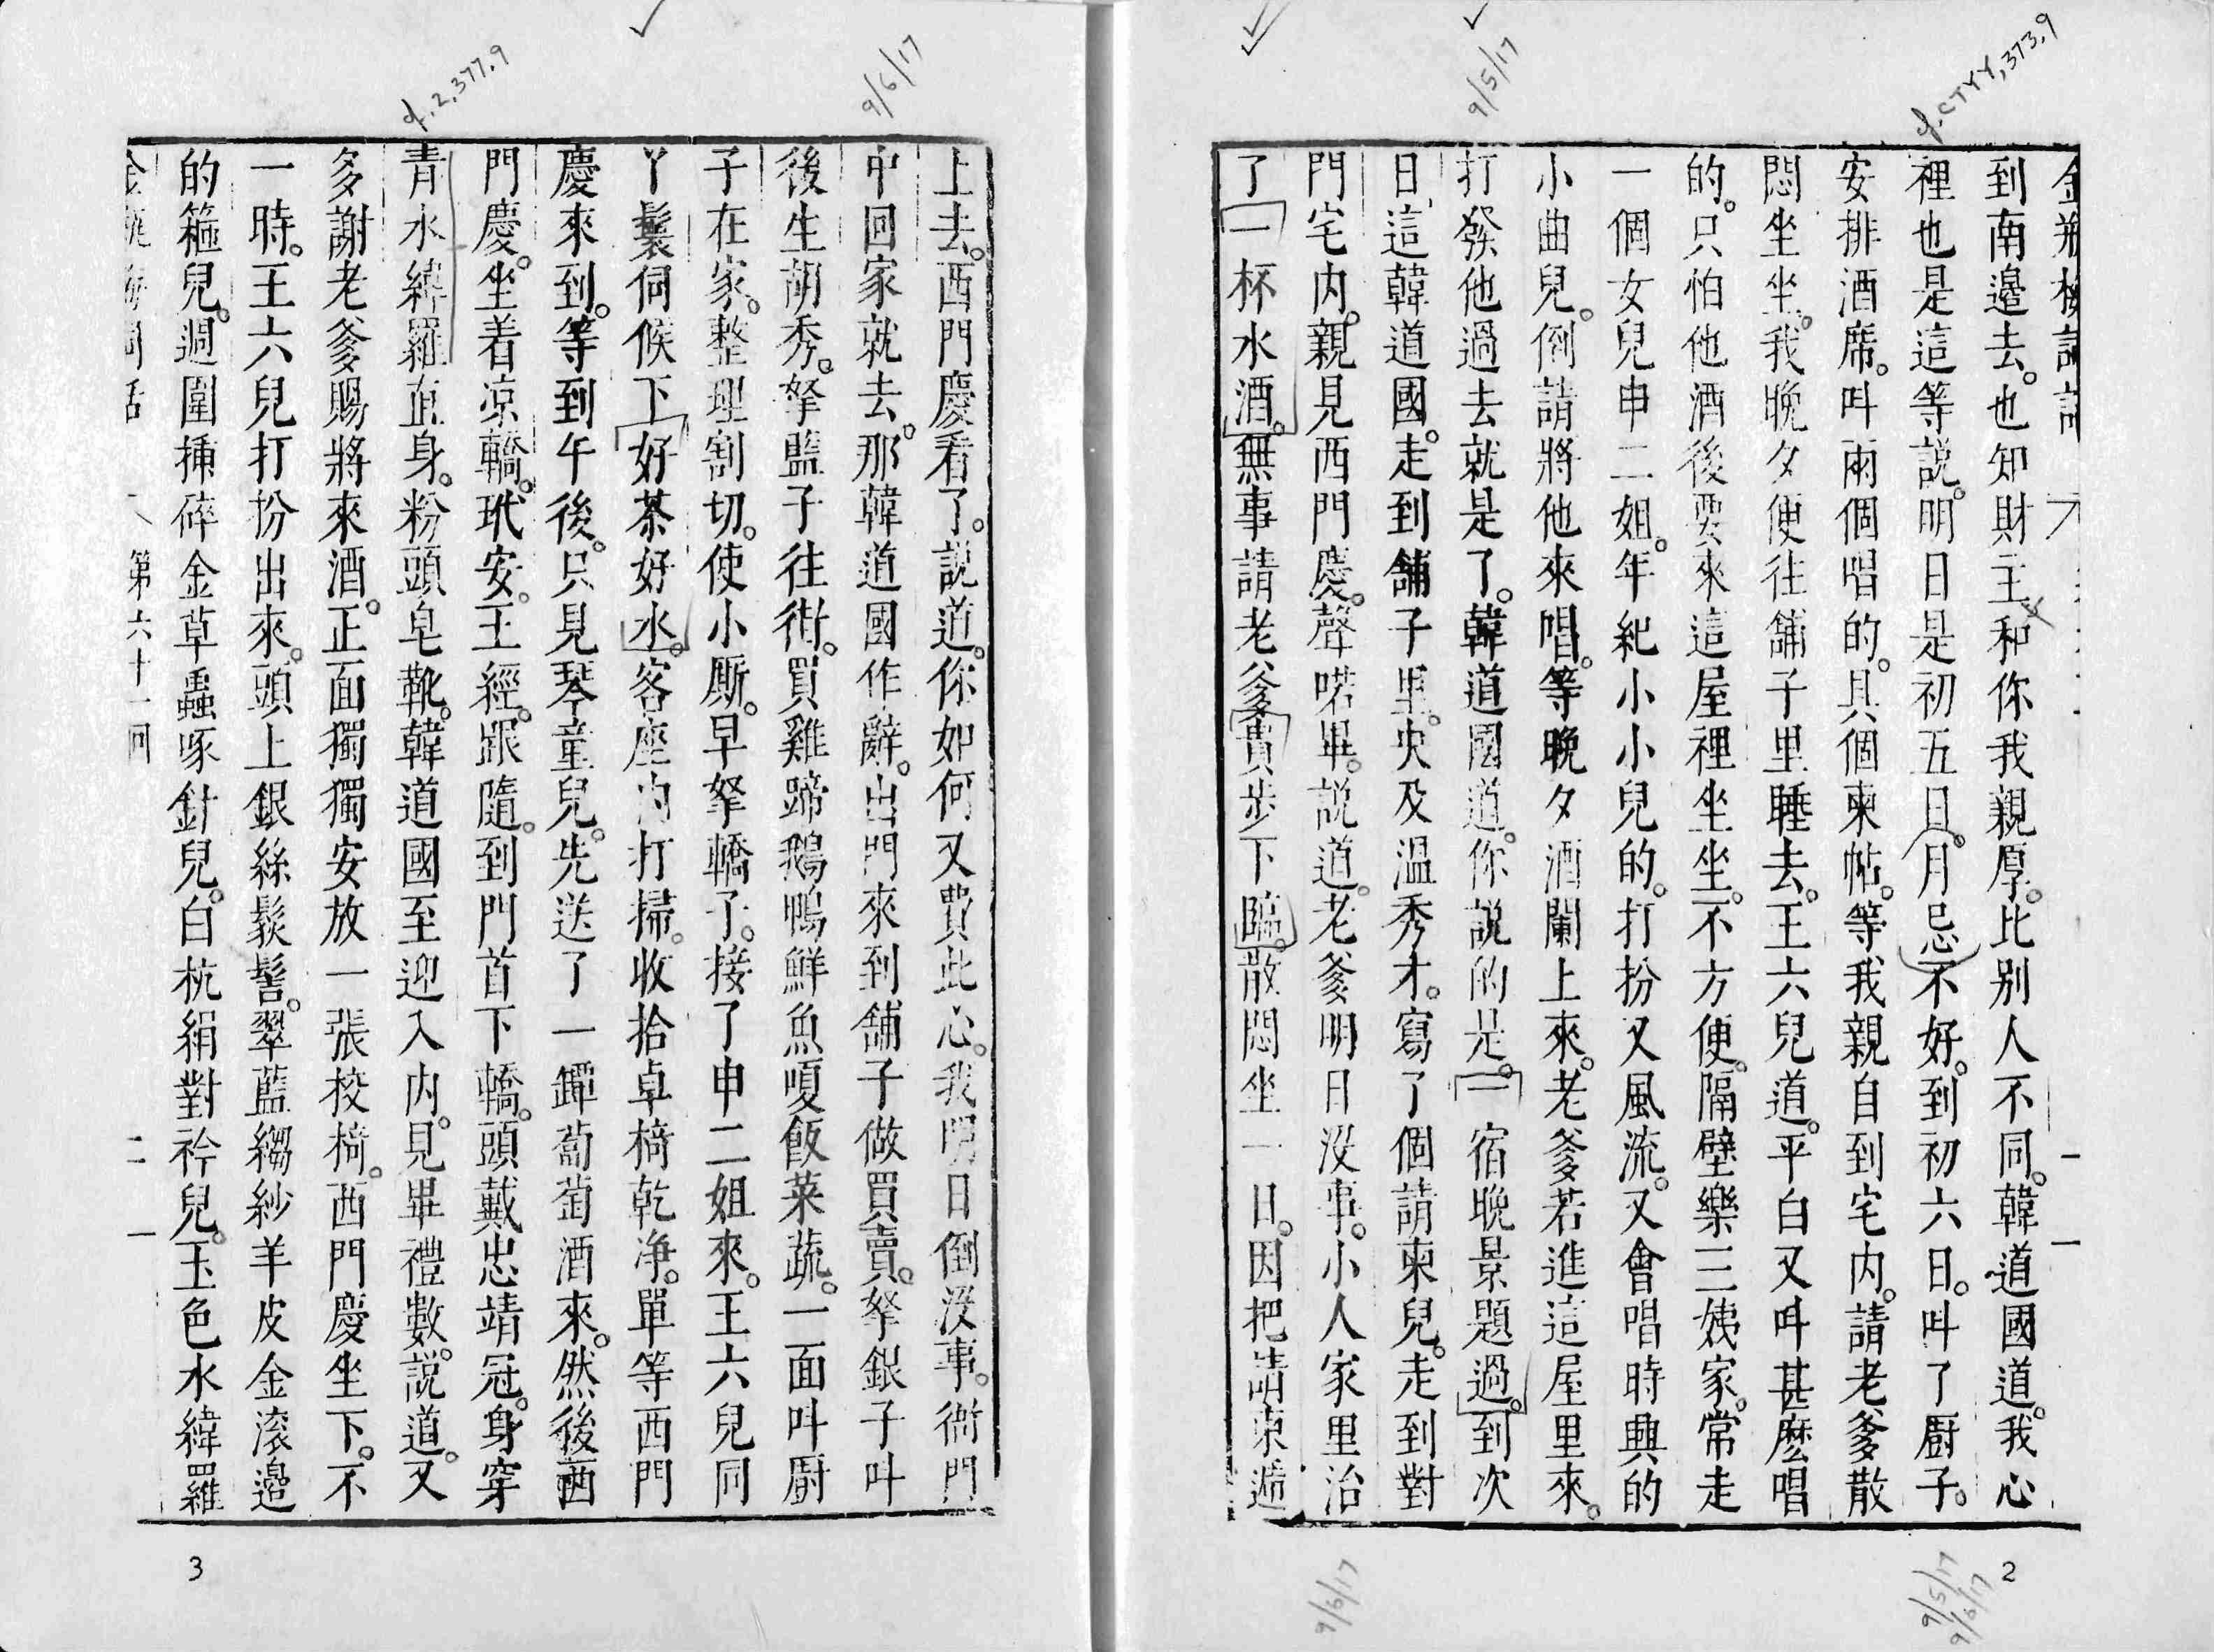 到南邉去。也知財主和你我親厚。比别人不同。韓道國道。我心
裡也是這等説。明日是初五日。月忌不好。到初六日。呌了厨子。
安排酒席。呌兩個唱的。具個柬帖。等我親自到宅内。請老爹散
悶坐坐。我晚夕便往舖子里睡去。王六兒道。平白又呌甚麽唱
的。只怕他酒後要來這屋裡坐坐。不方便。隔壁樂三姨家。常走
一個女兒申二姐。年紀小小兒的。打扮又風流。又會唱時興的
小曲兒。倒請將他來唱。等晚夕酒闌上來。老爹若進這屋里來。
打發他過去就是了。韓道國道。你説的是。一宿晚景題過。到次
日這韓道國。走到舖子里。央及温秀才。寫了個請柬兒。走到對
門宅内。親見西門慶。聲喏畢。説道。老爹明日没事。小人家里治
了一杯水酒。無事請老爹貴步下臨。散悶坐一日。因把請柬遞
2
上去。西門慶看了。説道。你如何又費此心。我明日倒没事。衙門
中回家就去。那韓道國作辭。出門來到舖子做買賣。拏銀子呌
後生胡秀。拏籃子往街。買雞蹄鵝鴨鮮魚嗄飯菜蔬。一面呌厨
子在家。整理割切。使小厮。早拏轎子。接了申二姐來。王六兒同
丫鬟伺候下好茶好水。客座内打掃。收拾卓椅乾净。單等西門
慶來到。等到午後。只見琴童兒。先送了一罈葡萄酒來。然後西
門慶。坐着凉轎。玳安。王經。跟隨。到門首下轎。頭戴忠靖冠。身穿
青水緯羅直身。粉頭皂靴。韓道國至迎入内。見畢禮數。説道。又
多謝老爹賜將來酒。正面獨獨安放一張校椅。西門慶坐下。不
一時。王六兒打扮出來。頭上銀絲䯼髻。翠藍縐紗羊皮金滚邉
的箍兒。週圍插碎金草蟲啄針兒。白杭絹對衿兒。玉色水緯羅
第六十一回
3
9/5/17
9/6/17